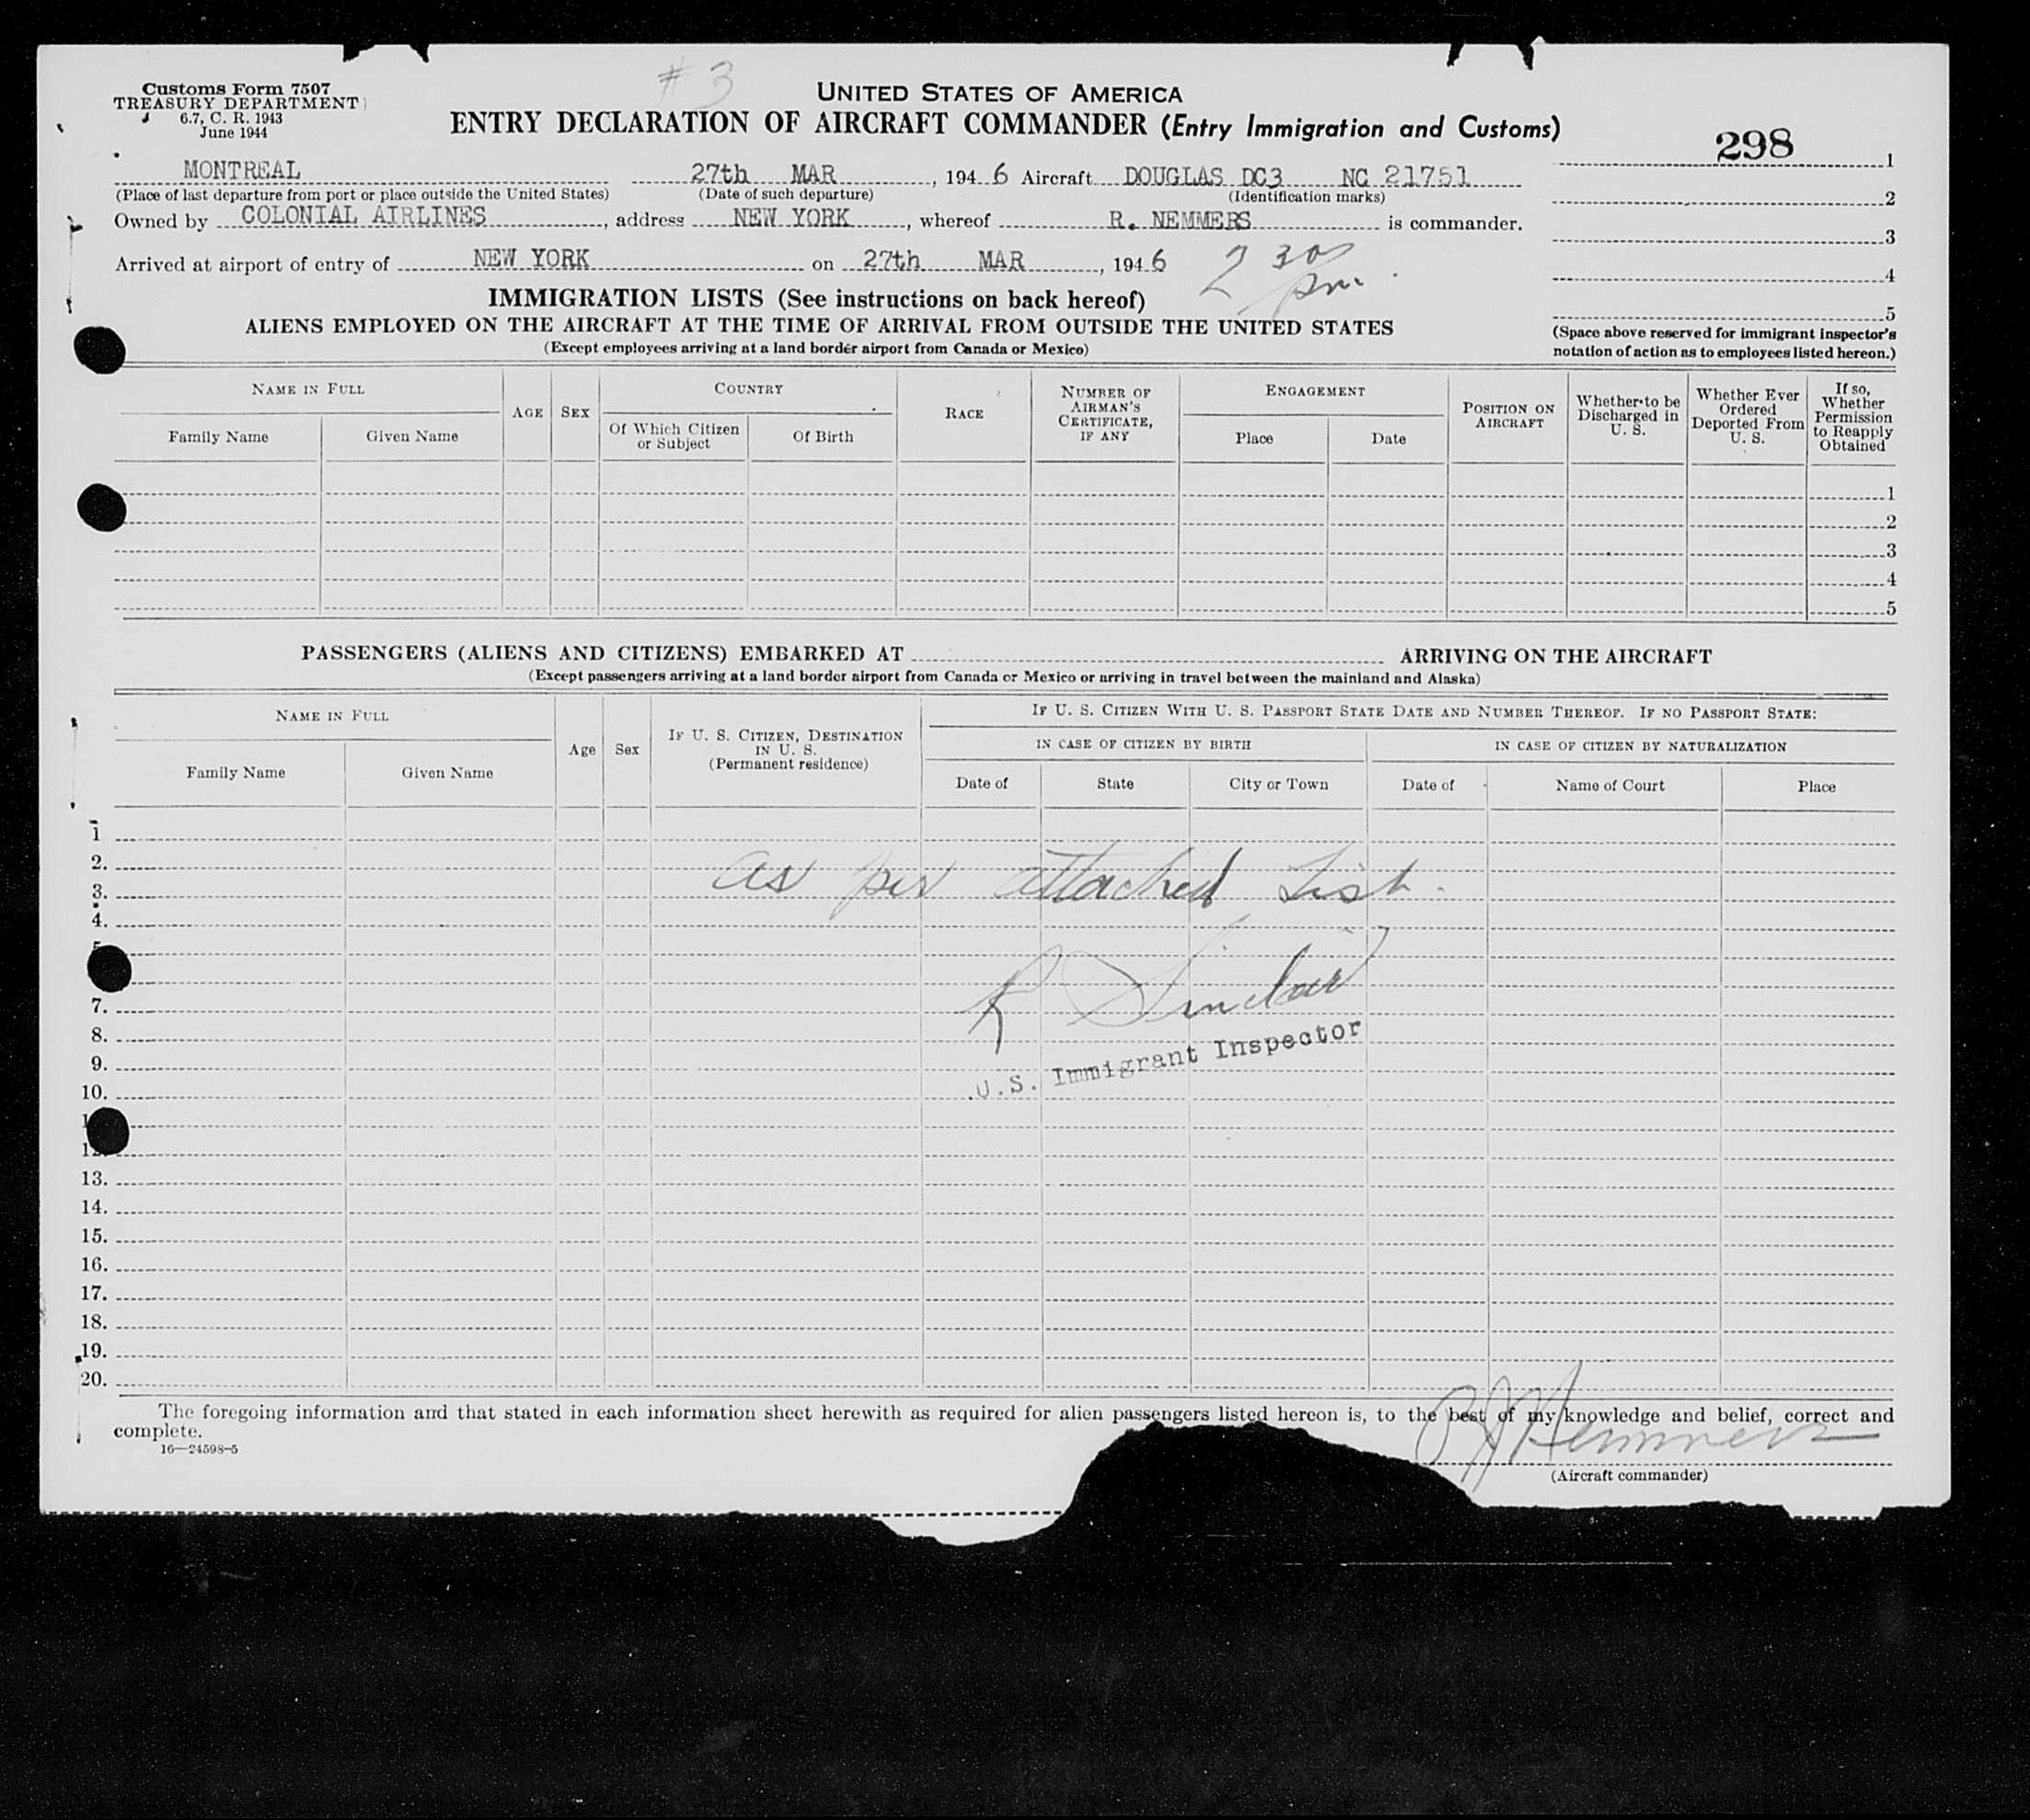 # 3
Customs Form 7507
TREASURY DEPARTMENT
6.7, C. R. 1943
June 1944
UNITED STATES OF AMERICA
ENTRY DECLARATION OF AIRCRAFT COMMANDER (Entry Immigration and Customs)
298
MONTREAL 27th MAR, 194 6 Aircraft DOUGLAS DC3 NC 21751
(Place of last departure from port or place outside the United States) (Date of such departure) (Identification marks)
Owned by COLONIAL AIRLINES, address NEW YORK, whereof R. NEMMERS is commander.
Arrived at airport of entry of NEW YORK on 27th MAR, 194 6 2 30 pm.
1
2
3
4
5
(Space above reserved for immigrant inspector's
notation of action as to employees listed hereon.)
IMMIGRATION LISTS (See instructions on back hereof)
ALIENS EMPLOYED ON THE AIRCRAFT AT THE TIME OF ARRIVAL FROM OUTSIDE THE UNITED STATES
(Except employees arriving at a land border airport from Canada or Mexico)
NAME IN FULL
Family Name
Given Name
AGE
SEX
COUNTRY
Of Which Citizen
or Subject
Of Birth
RACE
NUMBER OF
AIRMAN'S
CERTIFICATE,
IF ANY
ENGAGEMENT
Place
Date
POSITION ON
AIRCRAFT
Whether to be
Discharged in
U. S.
Whether Ever
Ordered
Deported From
U. S.
If so,
Whether
Permission
to Reapply
Obtained
1
2
3
4
5
PASSENGERS (ALIENS AND CITIZENS) EMBARKED AT ARRIVING ON THE AIRCRAFT
(Except passengers arriving at a land border airport from Canada or Mexico or arriving in travel between the mainland and Alaska)
NAME IN FULL
Family Name
Given Name
Age
Sex
IF U. S. CITIZEN, DESTINATION
IN U. S.
(Permanent residence)
IF U. S. CITIZEN WITH U. S. PASSPORT STATE DATE AND NUMBER THEREOF. IF NO PASSPORT STATE:
IN CASE OF CITIZEN BY BIRTH
IN CASE OF CITIZEN BY NATURALIZATION
Date of
State
City or Town
Date of
Name of Court
Place
1
2.
as per attached List.
3.
4.
5
R Sinclair
7.
8.
U.S. Immigrant Inspector
9.
10.
1
12.
13.
14.
15.
16.
17.
18.
19.
20.
The foregoing information and that stated in each information sheet herewith as required for alien passengers listed hereon is, to the best of my knowledge and belief, correct and
complete.
16—24598-5
R J Nemmers
(Aircraft commander)